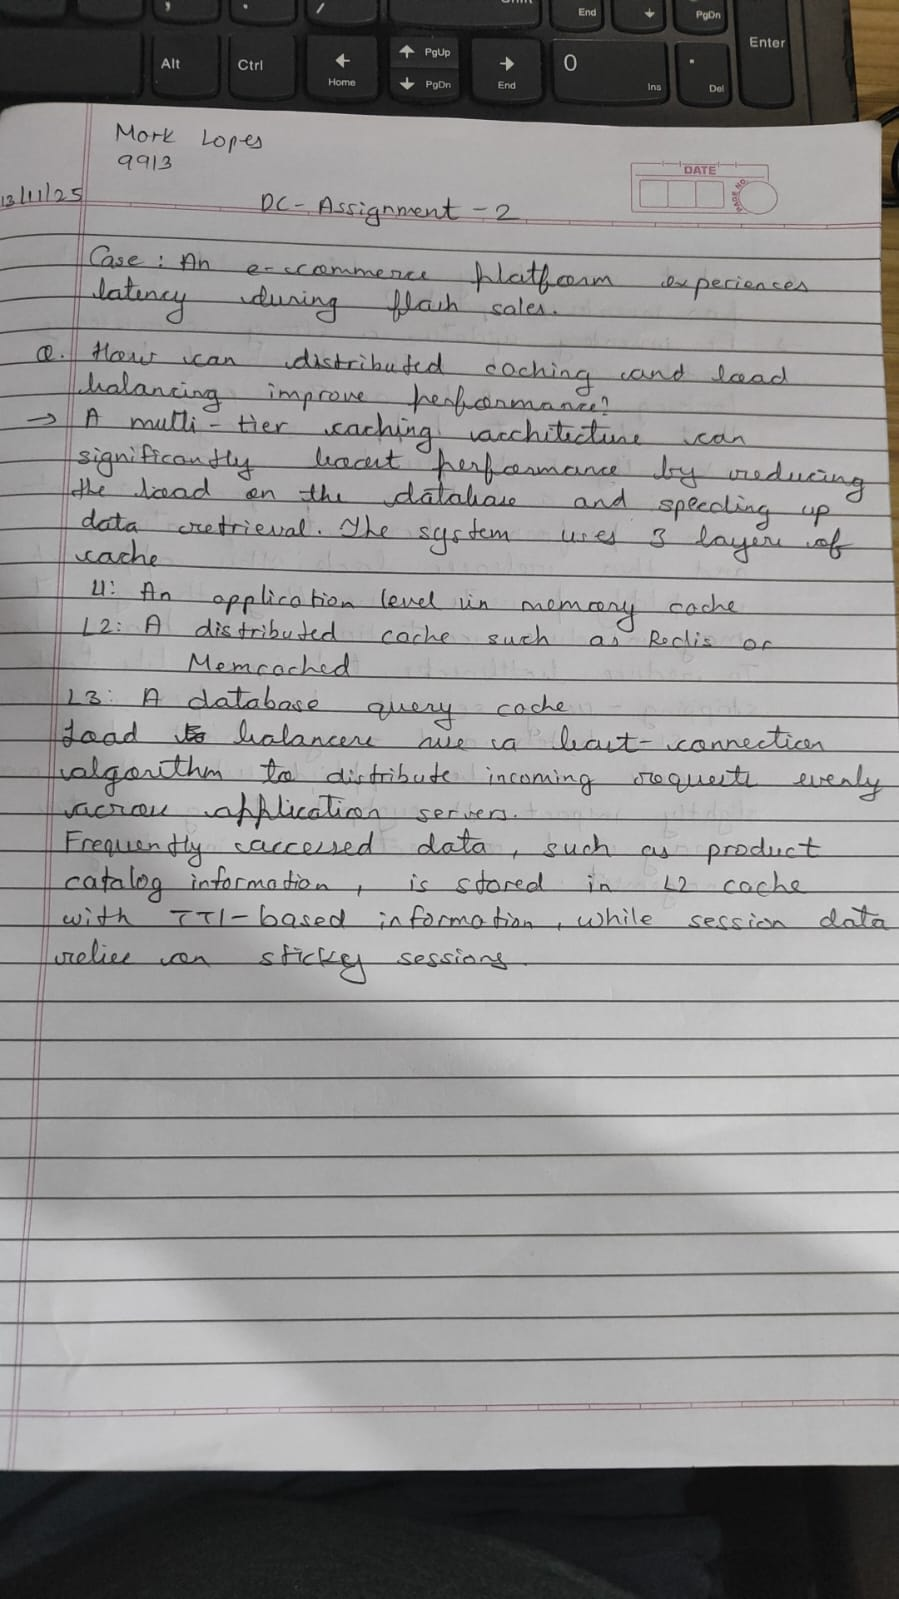 End
PgDn
Enter
Alt
Ctrl
Home
PgUp
PgDn
End
0
Ins
.
Del
Mark Lopes
9913
DATE
PAGE NO.
13/11/25
DC - Assignment - 2
Case : An e-commerce platform experiences
latency during flash sales.
Q. How can distributed caching and load
balancing improve performance?
→ A multi-tier caching architecture can
significantly boost performance by reducing
the load on the database and speeding up
data retrieval. The system uses 3 layers of
cache
L1: An application level in memory cache
L2: A distributed cache such as Redis or
Memcached
L3: A database query cache
Load balancers use a least-connection
algorithm to distribute incoming requests evenly
across application servers.
Frequently accessed data, such as product
catalog information, is stored in L2 cache
with TTl-based information, while session data
relies on sticky sessions.